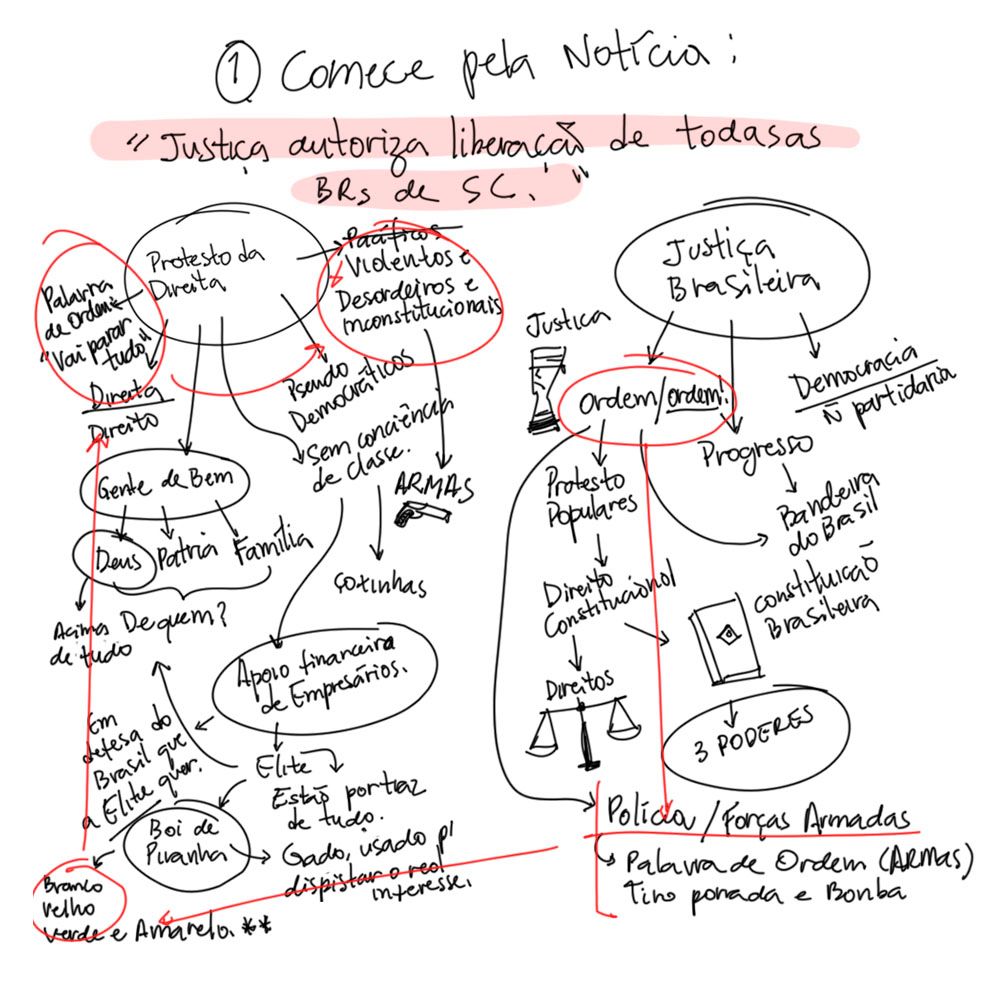 ① Comece pela Notícia:
"Justiça autoriza liberação de todasas
BRs de SC."
Protesto da
Direita
Pacíficos
Violentos e
Desordeiros e
inconstitucionais
Palavra
de Ordem
"Vai parar
tudo"
Direita
Direito
Pseudo
Democráticos
Sem conciência
de classe.
ARMAS
Gente de Bem
Deus
Patria
Família
Acima
de tudo
De quem?
Çoxinhas
Apoio financeira
de Empresários.
Em
defesa do
Brasil que
a Elite quer.
Elite
Estão por traz
de tudo.
Boi de
Piranha
Gado, usado p/
dispistar o real
interesse.
Branco
Velho
Verde e Amarelo. **
Justiça
Brasileira
Justica
Ordem/ordem!
Democracia
Ñ partidaria
Progresso
Bandeira
do Brasil
Protesto
Populares
Direito
Constitucional
constituição
Brasileira
Direitos
3 PODERES
Polícia/Forças Armadas
Palavra de Ordem (ARMAS)
Tiro porrada e Bomba